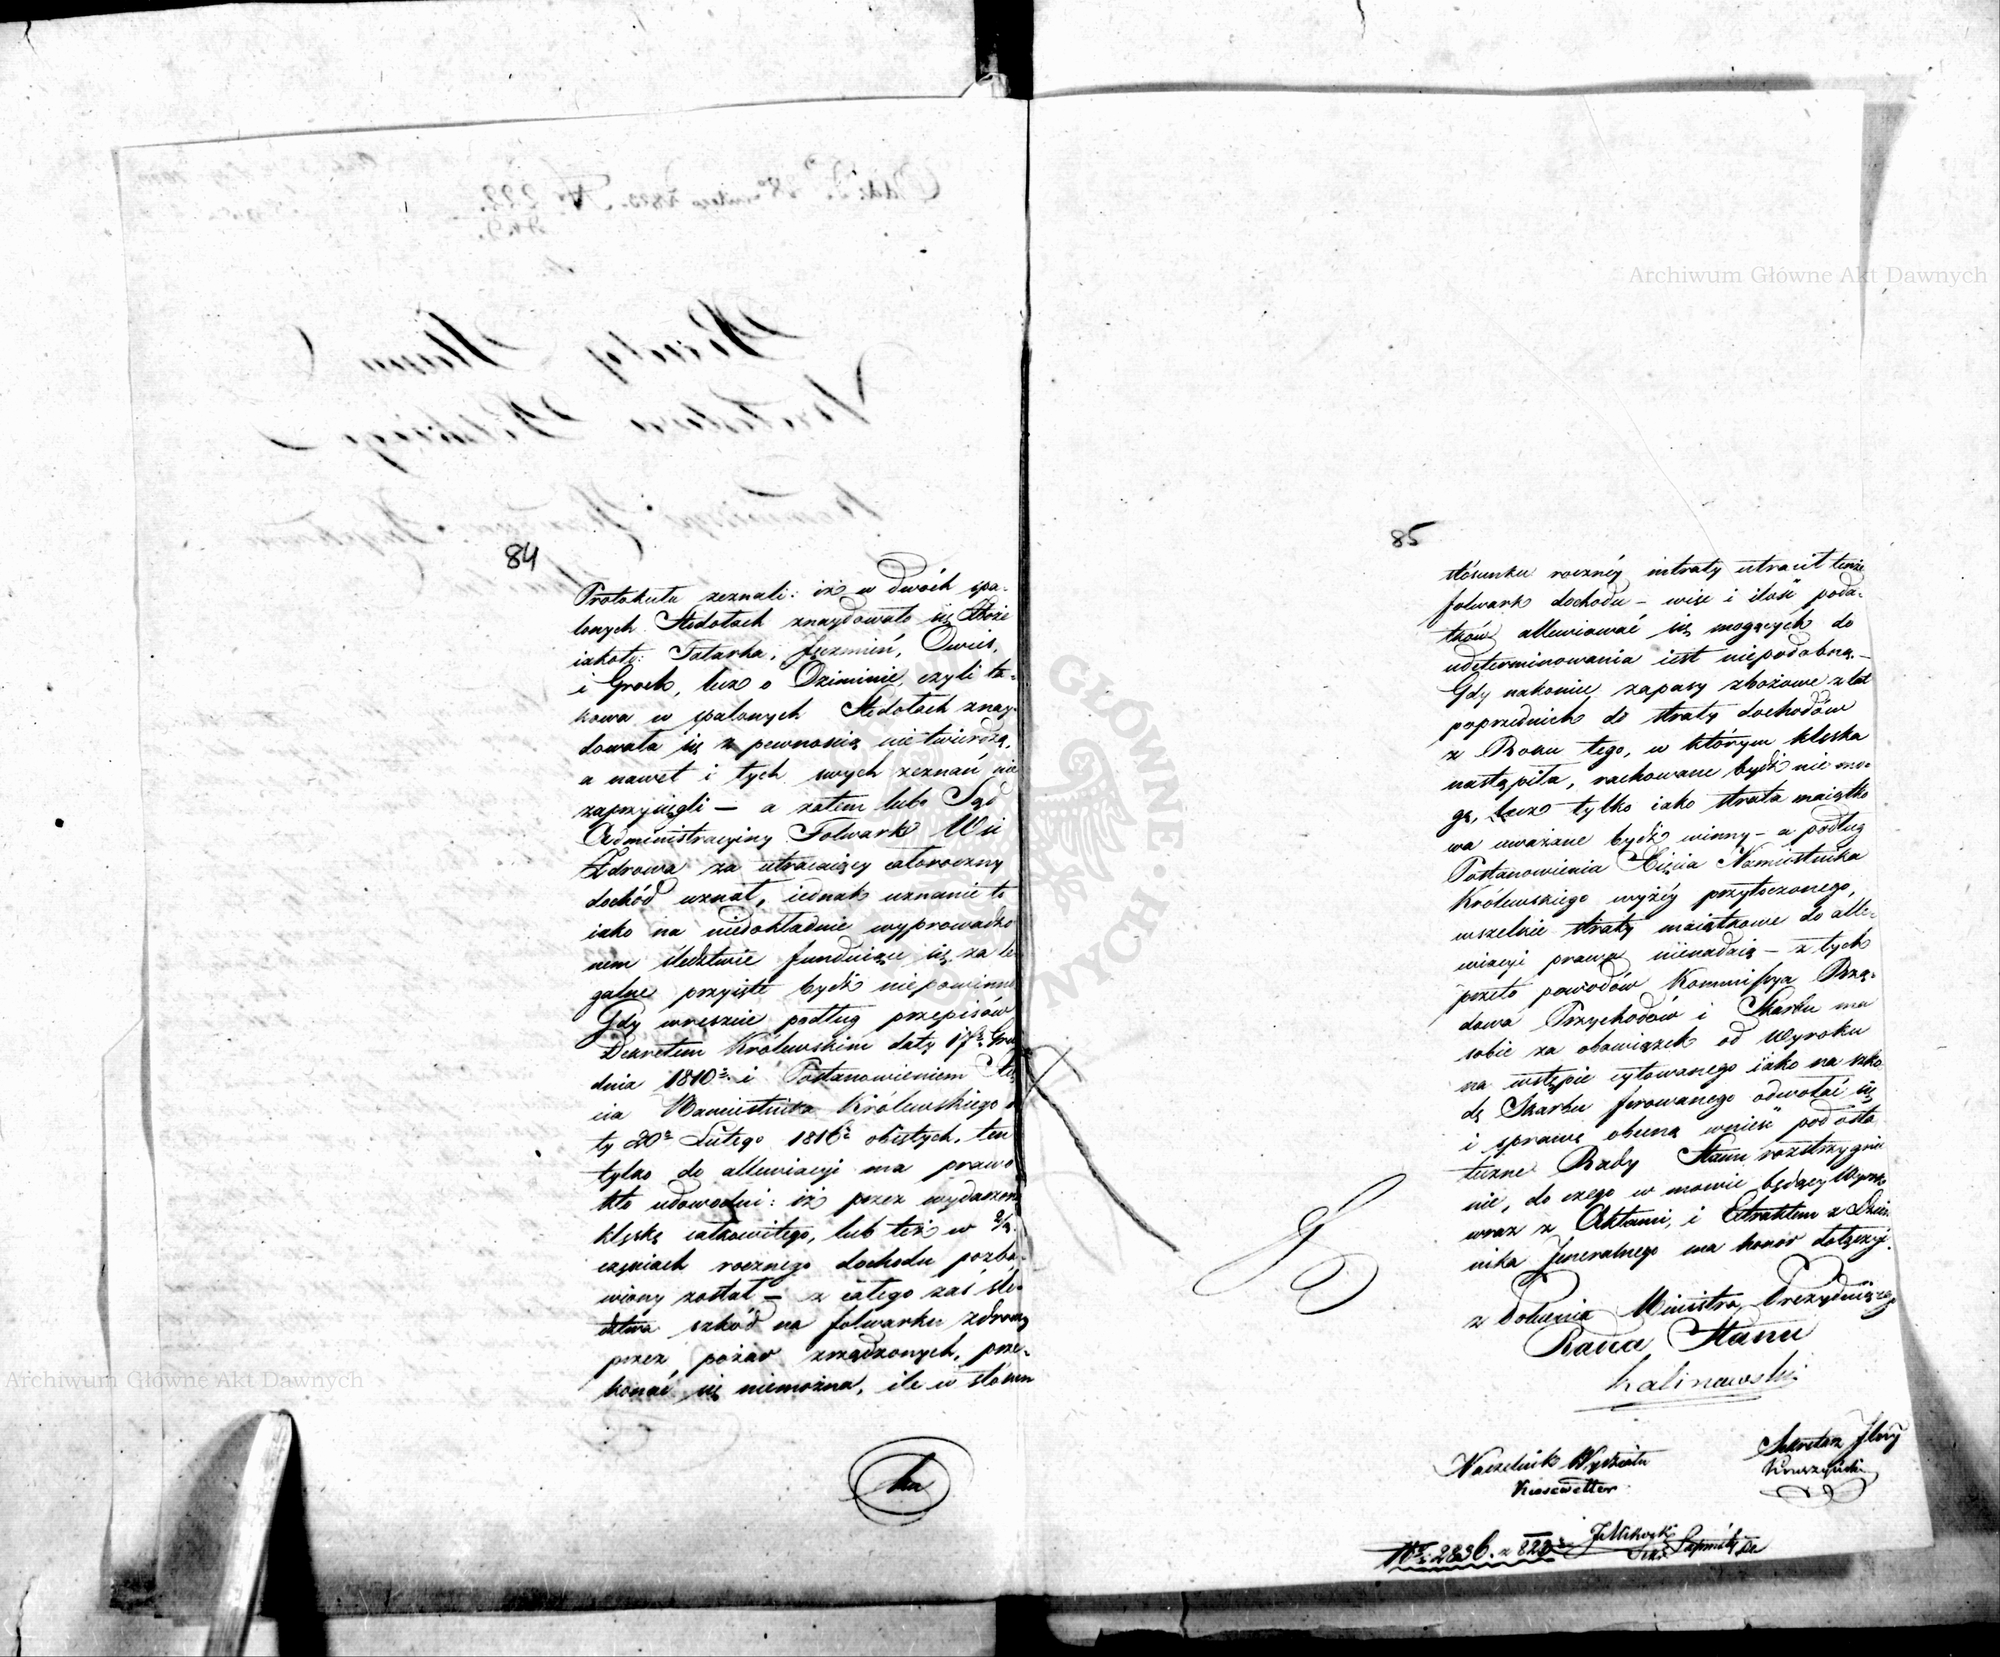 84
Protokułu zeznali: iż w dwóch spa-
lonych Stodołach znaydowało się Zboże
iakoto: Tatarka, Jęczmień, Owies,
i Groch, lecz o Oziminie, czyli ta-
kowa w spalonych Stodołach znay-
dowała się z pewnością nie twierdzą,
a nawet i tych swych zeznań nie
zaprzysięgli — a zatem lubo Sąd
Administracyiny Folwark Wsi
Zdrowa za utracaiący całoroczny
dochód uznał, iednak uznanie to
iako na niedokładnie wyprowadzo
nem śledztwie funduiące się za le
galne przyięte bydź niepowinno
Gdy wreszcie podług przepisów
Dekretem Królewskim daty 17º Gru
dnia 1810º i Postanowieniem Xię
cia Namiestnika Królewskiego d
ty 20º Lutego 1816º obiętych, ten
tylko do allewiacyi ma prawo
kto udowodni: iż przez wydarzoną
klęskę całkowitego, lub też w 2/3
częściach rocznego dochodu pozba-
wiony został — z całego zaś śle-
dztwa szkód na folwarku Zdrowy
przez pożar zrządzonych, prze-
konać się niemożna, ile w stosun
85
stosunku roczney intraty utracił tenże
folwark dochodu — więc i ilość poda-
tków allewiować się mogących do
udeterminowania iest niepodobną —
Gdy nakoniec zapasy zbożowe z lat
poprzednich do straty dochodów
z Roku tego, w którym klęska
nastąpiła, rachowane bydź nie mo-
gą, lecz tylko iako strata maiątko
wa uważane bydź winny — a podług
Postanowienia Xięcia Namiestnika
Królewskiego wyżey przytoczonego,
wszelkie straty maiątkowe do alle-
wiacyi prawa nienadaią — z tych
przeto powodów Kommissya Rzą-
dowa Przychodów i Skarbu ma
sobie za obowiązek od Wyroku
na wstępie cytowanego iako na szko
dę Skarbu ferowanego odwołać się
i sprawę obecną wnieść pod osta
teczne Rady Stanu rozstrzygnie
nie, do czego w mowie będący Wyrok
wraz z Aktami, i Extraktem z Dzien
nika Jeneralnego ma honor dołączyć.
z Polecenia Ministra Prezyduiącego
Radca Stanu
Kalinowski
Naczelnik Wydziału
Kiesewetter
Sekretarz Jlny
Kruszyński